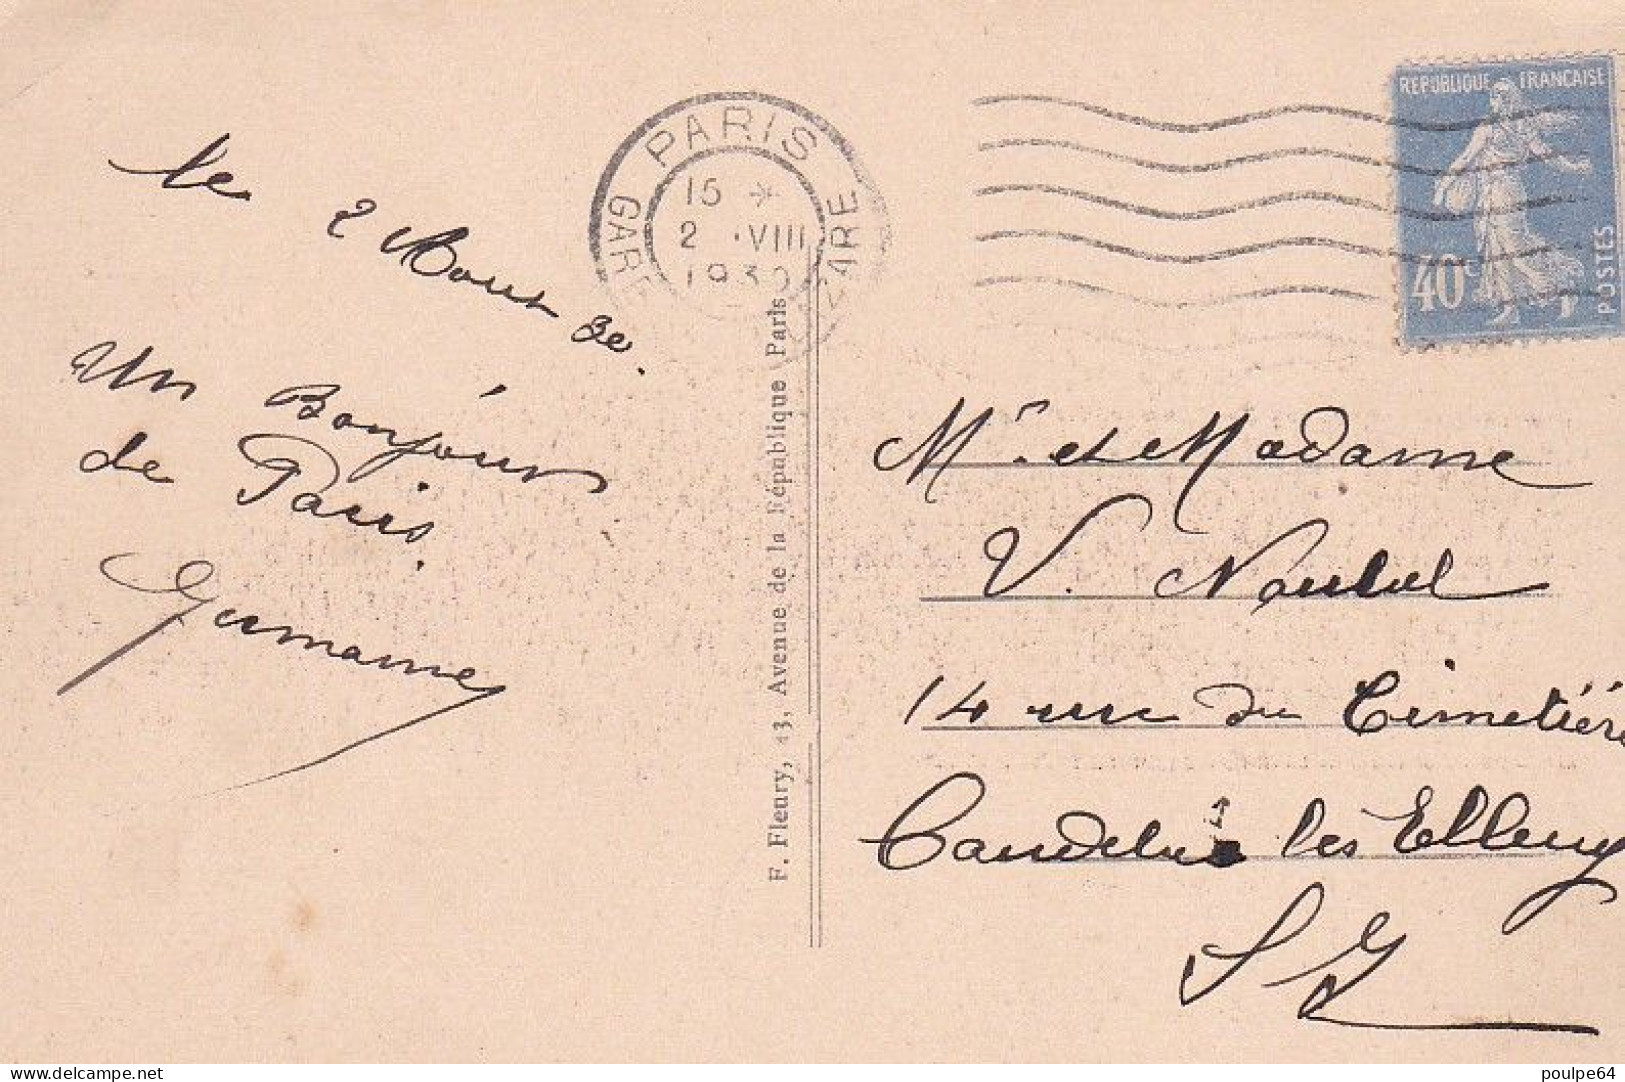 le 2 Aout 30.
Un Bonjour
de Paris.
Germaine
PARIS
GARE
15 *
2 .VIII
1930
GARE
F. Fleury, 43, Avenue de la République Paris
REPUBLIQUE FRANÇAISE
40c
POSTES
Mr et Madame
V.
14 rue du Cimetière
Caudebec les Elbeuf
S I
delcampe.net
poulpe64